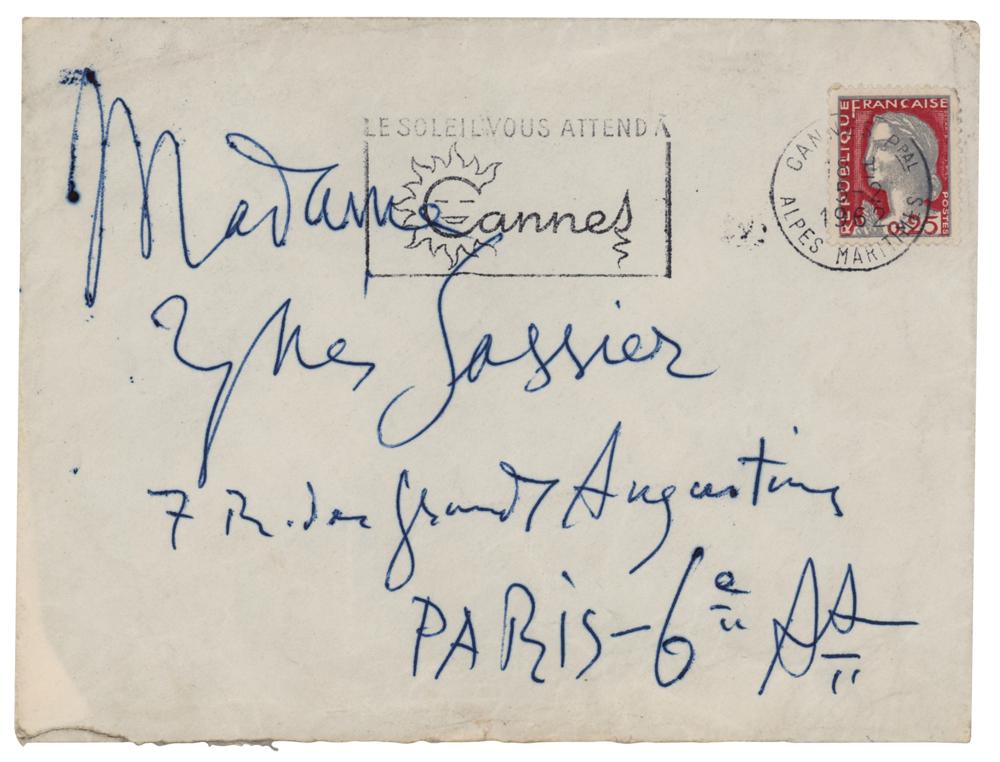 LE SOLEIL VOUS ATTEND À
Cannes
CANNES PPAL
ALPES MARITIMES
REPUBLIQUE FRANCAISE
POSTES
0,25
Madame
Ynes Sassier
7 R. des Grands Augustins
PARIS-6e